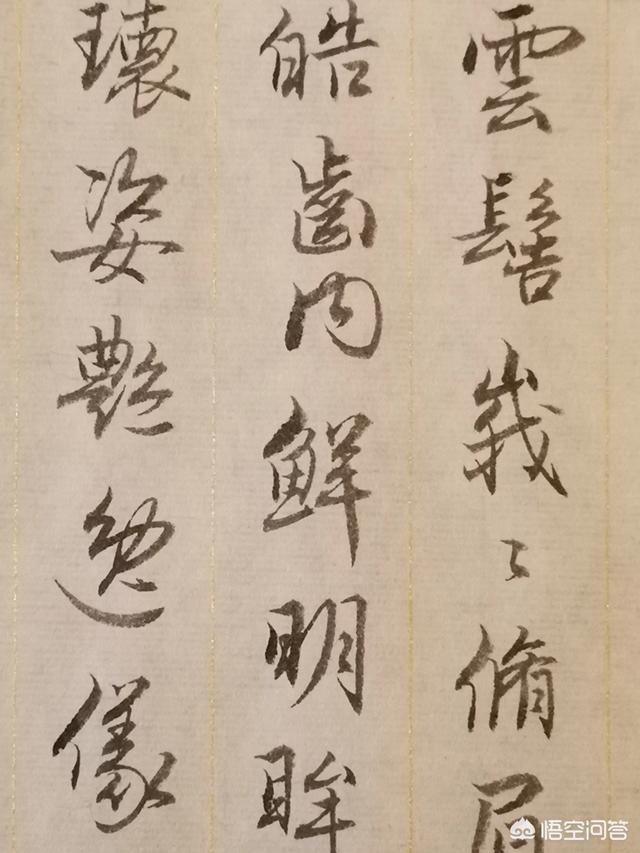 雲髻峩〻脩眉
皓齒内鮮明眸
瓌姿艷逸儀
悟空问答